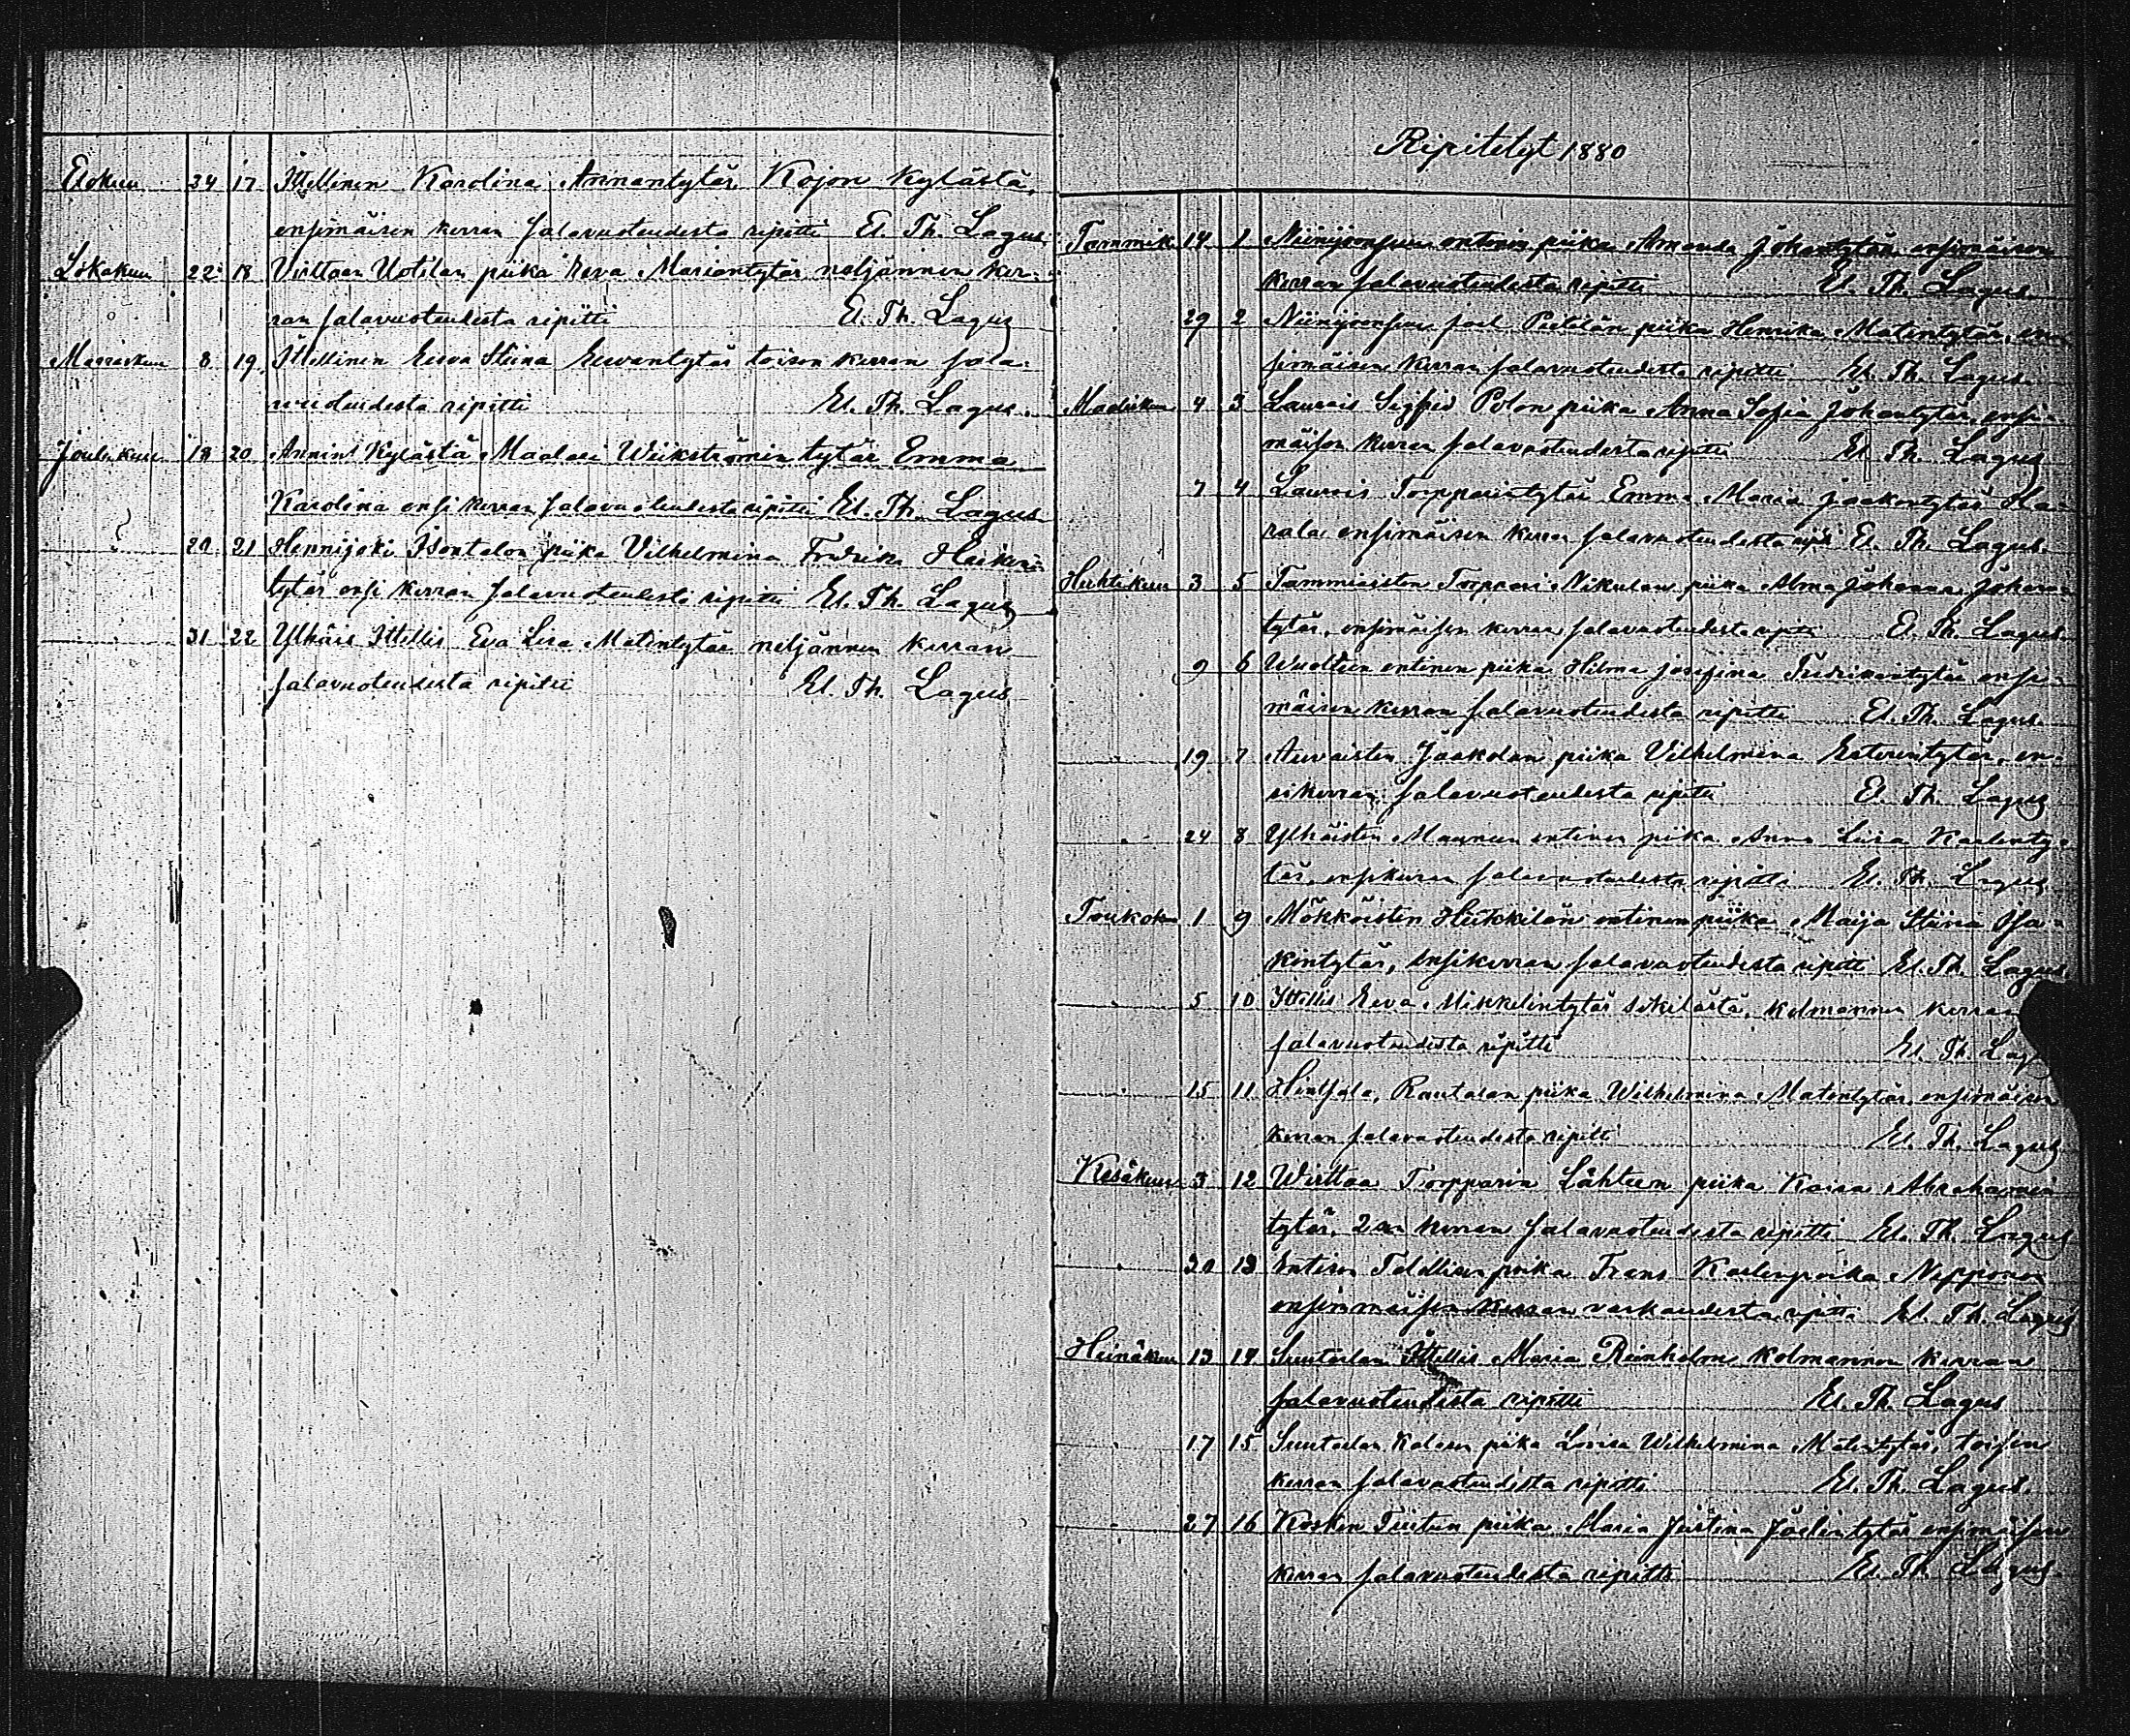 Elokuu 24 17 Ittellinen Karolina Annantytär Kojon kylästä,
ensimäisen kerran salavuoteudesta ripitti El. Th. Lagus
Lokakuu 22 18 Virttaan Uotilan piika Eeva Mariantytär neljännen ker-
ran salavuoteudesta ripitti El. Th. Lagus
Marraskuu 8 19 Ittellinen Eeva Stiina Eevantytär toisen kerran sala-
vuoteudesta ripitti El. Th. Lagus.
Joulukuu 18 20 Annin kylästä Maalari Wiikströmin tytär Emma
Karolina ensi kerran salavuoteudesta ripitti El. Th. Lagus
" 20 21 Hennijoki Isontalon piika Vilhelmina Fredrika Heikin-
tytär ensi kerran salavuoteudesta ripitti El. Th. Lagus
31 22 Ylhäis Ittellis Eva Lisa Matintytär neljännen kerran
salavuoteudesta ripitti El. Th. Lagus
Ripitetyt 1880
Tammik 14 1 Niinijoensuun entinen piika Amanda Johantytär ensimäisen
kerran salavuoteudesta ripitti El. Th. Lagus.
29 2 Niinijoensuu Peltolan piika Henrika Matintytär, en-
simäisen kerran salavuoteudesta ripitti El. Th. Lagus.
Maalisku 4 3 Laurois Sigfred Polon piika Anna Sofia Johantytär, ensi-
mäisen kerran salavuoteudesta ripitti El. Th. Lagus
7 4 Laurois Torpparintytär Emma Maria Jaakontytär Ha-
rala ensimäisen kerran salavuoteudesta ripi El. Th. Lagus.
Huhtikuu 3 5 Tammiaisten Torppari Nikulan piika Alma Johanna Johan-
tytär, ensimäisen kerran salavuoteudesta ripitti El. Th. Lagus.
9 6 entinen piika Hilma Josefina Fredrikintytär ensi-
mäisen kerran salavuoteudesta ripitti El. Th. Lagus
19 7 Auvaisten Jaakolan piika Vilhelmina Esterintytär, en-
sikerran salavuoteudesta ripitti El. Th. Lagus
" 24 8 Ylhäisten Maunun entinen piika Anna Liisa Kaalenty-
tär, ensikerran salavuoteudesta ripitti El. Th. Lagus
Toukoku 1 9 Mökköisten Heikkilän entinen piika Maija Stiina Isa-
kintytär, ensikerran salavuoteudesta ripitti El. Th. Lagus
" 5 10 Ittellis Eeva Mikkelintytär Sikilästä, kolmannen kerran
salavuoteudesta ripitti El. Th. Lag
" 15 11 Hirtsala, Rautalan piika Wilhelmina Matintytär ensimäisen
kerran salavuoteudesta ripitti El. Th. Lagus
Kesäkuu 3 12 Wirttaa Torpparin Lähteen piika Kaisa Abrahamin
tytär, 2 sen kerran salavuoteudesta ripitti El. Th. Lagus
" 30 13 Entisen Talollisen poika Frans Kaalenpoika Nepponen
ensimmäisen kerran varkaudesta ripitti El. Th. Lagus
Heinäkuu 13 14 Suutarlan Ittellis Maria Reinholm kolmannen kerran
salavuoteudesta ripitti El. Th. Lagus
" 17 15 Suutarlan Kalasen piika Lovisa Wilhelmina Matintytär, toisen
kerran salavuoteudesta ripitti El. Th. Lagus.
" 27 16 Kosken Tuitun piika Maria Justina Joelintytär ensimäisen
kerran salavuoteudesta ripitti El. Th. Lagus.